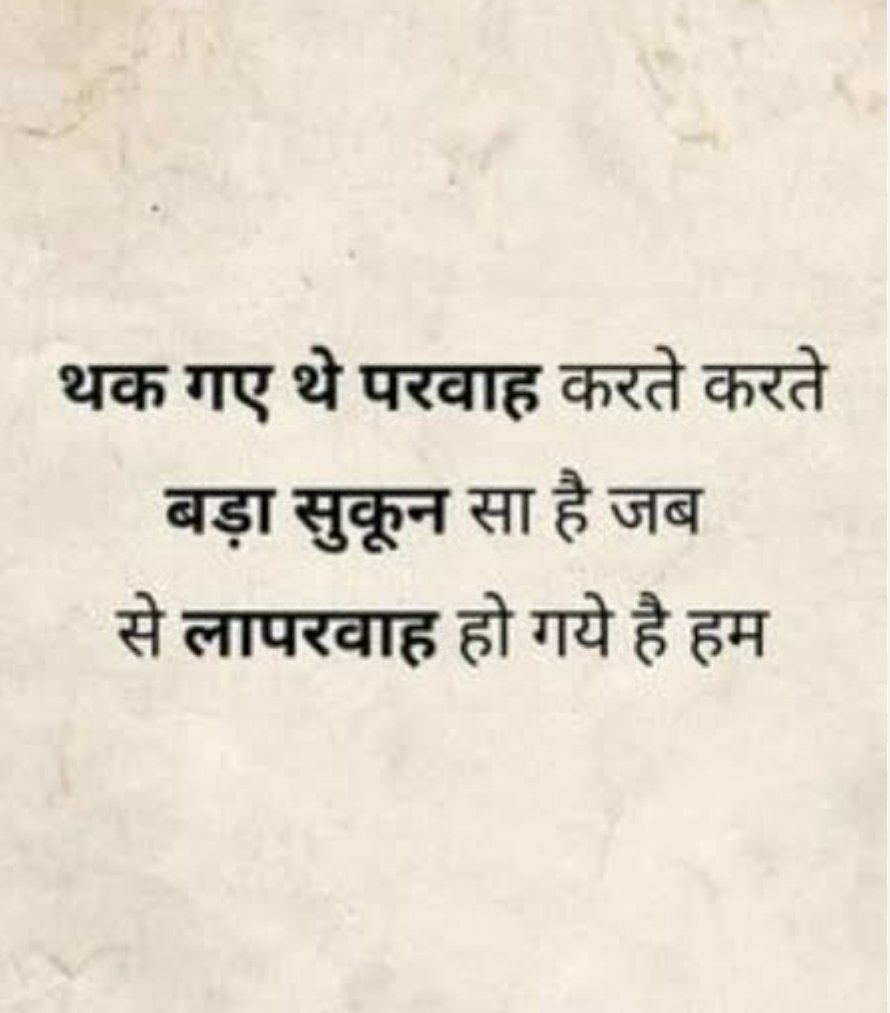 थक गए थे परवाह करते करते
बड़ा सुकून सा है जब
से लापरवाह हो गये है हम